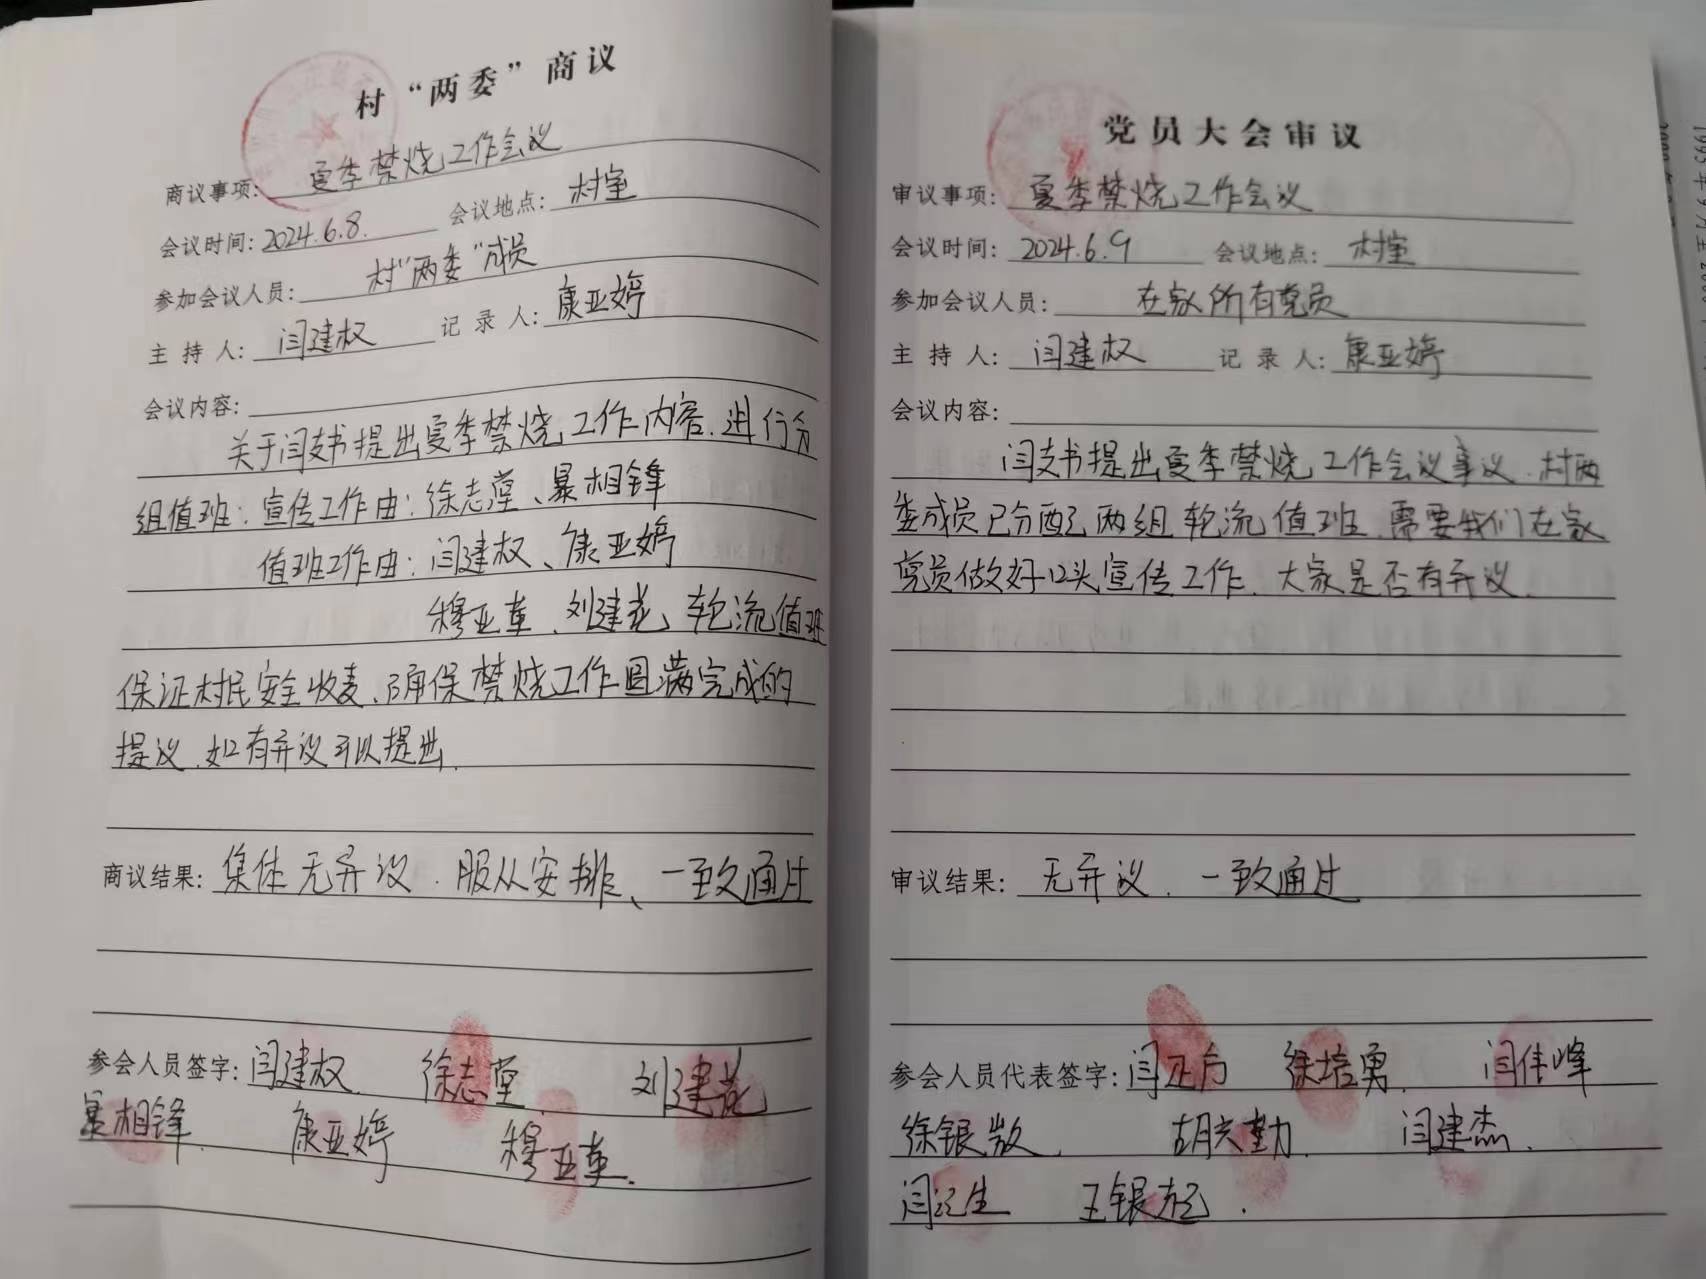 村“两委”商议
商议事项: 夏季禁烧工作会议
会议时间: 2024.6.8. 会议地点: 村室
参加会议人员: 村“两委”成员
主持人: 闫建权 记录人: 康亚婷
会议内容:
关于闫支书提出夏季禁烧工作内容.进行分
组值班: 宣传工作由: 徐志堂、暴相锋
值班工作由: 闫建权、康亚婷
穆亚革、刘建花轮流值班
保证村民安全收麦、确保禁烧工作圆满完成的
提议.如有异议可以提出.
商议结果: 集体无异议.服从安排、一致通过
参会人员签字: 闫建权 徐志堂. 刘建花
暴相锋. 康亚婷 穆亚革.
党员大会审议
审议事项: 夏季禁烧工作会议
会议时间: 2024.6.9 会议地点: 村室
参加会议人员: 在家所有党员
主持人: 闫建权 记录人: 康亚婷
会议内容:
闫支书提出夏季禁烧工作会议事议.村两
委成员已分配两组轮流值班.需要我们在家
党员做好口头宣传工作.大家是否有异议.
审议结果: 无异议.一致通过
参会人员代表签字: 闫正方 徐培勇. 闫伟峰
徐银 胡兴勤. 闫建杰.
闫 生 王银